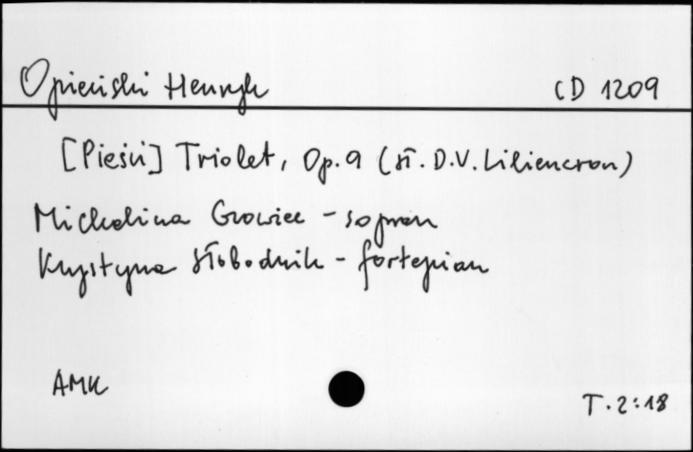 Opieński Henryk CD 1209
[Pieśń] Triolet, Op. 9 (sł. D.V. Liliencron)
Michalina Growiec - sopran
Krystyna Słobodnik - fortepian
AMK T. 2:18